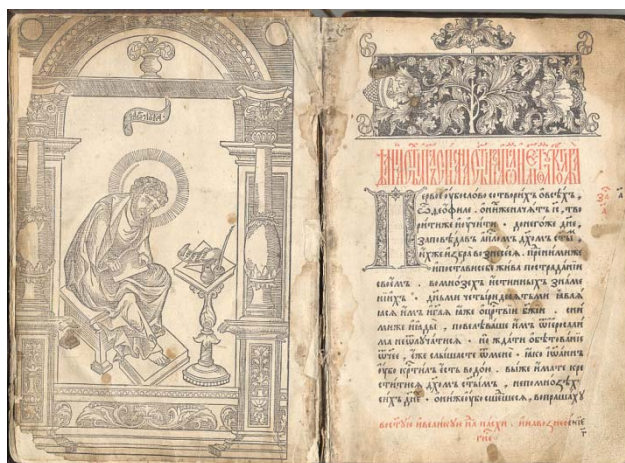 Первое ꙋбо слово сотворихъ ѡ всѣхъ,
ѽ ѳеѡфиле · ѡ нихже начатъ іс҃, тво
рити же и ꙋчити · до негоже дне,
заповѣдавъ ап҃лѡмъ дх҃омъ ст҃ы,
ихже избра вознесеся · пред ними же
и постави себе жива по страдании
своемъ · во мнозѣхъ истинныхъ знаме
ниихъ · дньми четыридесятьми ꙗвлѧѧ
сѧ имъ и гл҃ѧ ꙗже о црт҃вии бж҃ии · с ни
миже и ꙗды, повелѣваше имъ ѿ иерсали
ма не ѿлꙋчатисѧ · но ждати обѣтование
ѿчее, еже слышасте ѿ мене · ꙗко иѡаннъ
ꙋбо крт҃илъ есть водою · вы же имате кре
ститисѧ дх҃омъ ст҃ымъ, не по мнозѣхъ
сихъ дне · они же ꙋбо сшедшесѧ, вопрашахꙋ
в ст҃ꙋю и великꙋю н҃лю пасхи · и на вознесение
г҃не